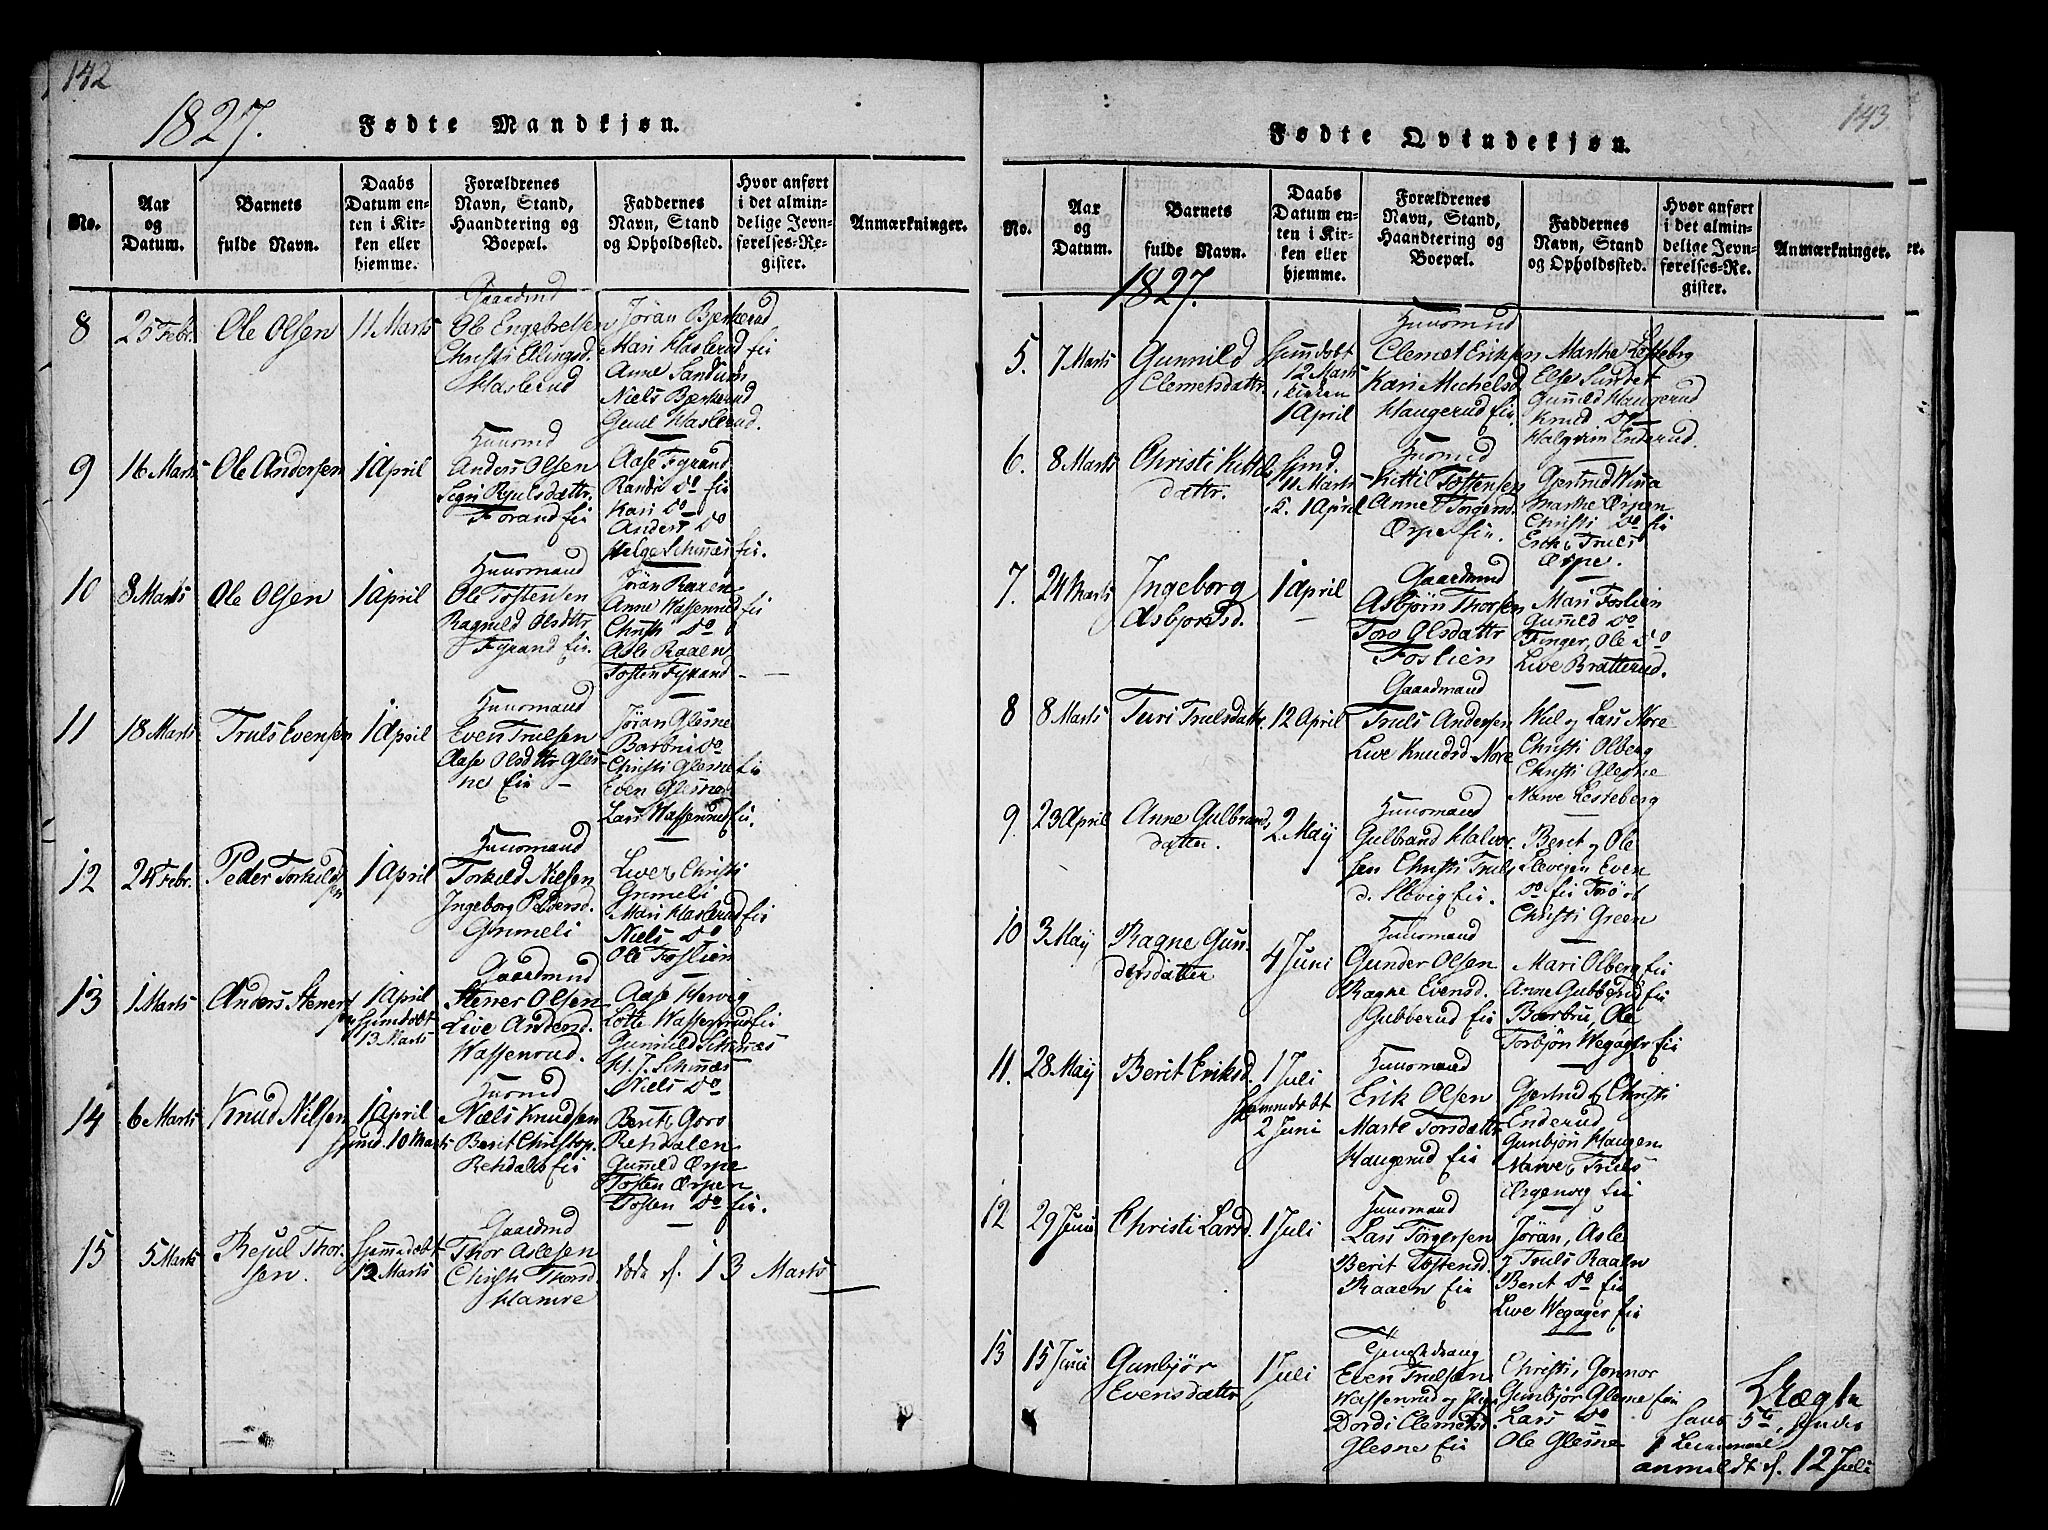 142
1827.
Fødte Mandkjøn.
No.
Aar og Datum.
Barnets fulde Navn.
Daabs Datum enten i Kirken eller hjemme.
Forældrenes Navn, Stand, Haandtering og Boepæl.
Faddernes Navn, Stand og Opholdssted.
Hvor anført i det almindelige Jevnførelses-Register.
Anmærkninger.
8
25 Febr.
Ole Olsen
11 Marts
Gaardmd
Ole Engebretsen
Christi Elingsd.
Haslerud
Jöran Bjerkerud
Mari Haslerud eii
Anne Sandum
Niels Bjerkerud
Haslerud.
9
16 Marts
Ole Andersen
1 April
Huusmd
Anders Olsen
Aase Fyrand
Randi Do eii
Kari Do
Anders Do
Helge Schinnes eii.
10
8 Marts
Ole Olsen
1 April
Huusmand
Ole Tostensen
Ragnild Olsdttr
Fyrand eii.
Jöran Raaen
Anne Wassenrud eii
Christi Do
Asle Raaen
Tosten Fyrand
11
18 Marts
Truls Evensen
1 April
Huusmand
Even Trulsen
Aase Olsdttr Gles-
ne eii
Jöran Glesne
Barbru Do
Christi Glesne eii
Even Glesne
Lars Wassenrud eii.
12
24 Febr.
Peder Torkild
sen
1 April
Huusmand
Torkild Nielsen
Ingeborg Pedersd.
Grimeli
Live & Christi
Grimeli
Mari Haslerud eii
Niels Do
Ole Foslien
13
1 Marts
Anders Steners
sen
1 April
Hjemdöbt
13 Marts
Gaardmd
Stener Olsen
Live Andersd.
Wassenrud.
Aase Hervig
Lotte Wassenrud eii
Gunnild Schinnes
H. J. Schinnes
Niels Do
14
6 Marts
Knud Nilsen
1 April
Hjemd. 10 Marts
Huusmd
Niels Knudsen
Berit Christop.
Rehdalen eii
Berit & Goro
Rehdalen
Gunild Ørpe
Tosten Ørpen
Tosten Do eii.
15
5 Marts
Resul Thor-
sen.
Hjemedöbt
12 Marts
Gaardmd
Thor Aslesen
Christi Thorsd.
Hamre
döde d. 13 Marts
143
Fødte Qvindekjøn.
No.
Aar og Datum.
Barnets fulde Navn.
1827.
Daabs Datum enten i Kirken eller hjemme.
Forældrenes Navn, Stand, Haandtering og Boepæl.
Faddernes Navn, Stand og Opholdssted.
Hvor anført i det almindelige Jevnførelses-Register.
Anmærkninger.
5.
7 Marts
Gunnild
Clemetsdattr
Hjemdöbt
12 Marts
i Kirken
1 April
Huusmd
Clemet Eriksen
Kari Michelsd.
Haugerud eii
Marthe Lesteberg
Else Sundet
Gunild Haugerud
Knud Do
Halgrim Enderud.
6.
8 Marts
Christi Kittels
dattr.
Hjemd.
11 Marts
K. 1 April
Huusmd
Kittil Tostensen
Anne Torgersd.
Ørpe eii.
Gertrud Wiisa
Marthe Ørpen
Christi Do eii
Erik & Truls
Ørpe.
7.
24 Marts
Ingeborg
Asbjörnsd.
1 April
Gaardmd
Asbjörn Thorsen
Toro Olsdattr
Foslien
Mari Foslien
Gunild Do
Finger, Ole Do
Live Bratterud.
8
8 Marts
Turi Trulsdattr
12 April
Gaardmand
Truls Andersen
Live Knudsd Nore
Lars Nore
Christi Olberg
Christi Glesne
Narve Lesteberg
9.
23 April
Anne Gulbrands
datter.
2 Maij
Huusmand
Gulbrand Halvor-
sen Christi Truls
d. Slevig eii.
Berit og Ole
Slevigen Even
Do eii Torö &
Christi Green
10
3 Maij
Ragne Gun-
dersdatter
4 Juni
Huusmand
Gunder Olsen
Ragne Evensd.
Gubberud eii
Mari Olberg eii
Anne Gubberud eii
Barbru, Ole
Torbjön Wegager eii
11.
28 Maij
Berit Eriksd.
1 Juli
Hjemmedöbt
2 Juni
Huusmand
Erik Olsen
Marte Torsdattr
Haugerud eii
Gjertrud & Christi
Enderud
Gunbjön Haugen
Narve & Truls
Ørgenvig eii
12
29 Juni
Christi Larsd.
1 Juli
Huusmand
Lars Törgersen
Berit Tostensd.
Raaen eii
Jöran, Asle
og Truls Raaen
Berit Do eii
Live Wegager eii
13
15 Juni
Gunbjör
Evensdattr
1 Juli
Even Trulsen
Wassenrud og Pige
Dordi Clemetsd.
Glesne eii
Christi, Gonnor
Gunbjör Glesne eii
Lars Do
Ole Glesne
Uægte
anmeldt d. 12 Juli